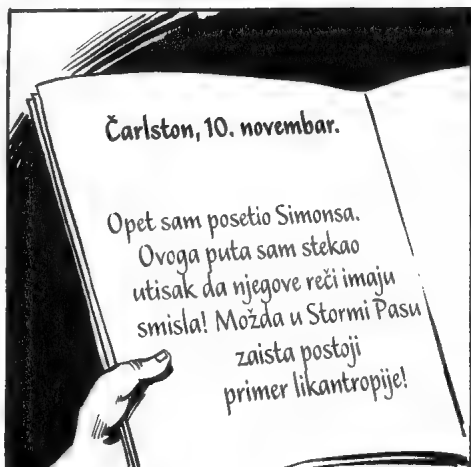 Čarlston, 10. novembar.
Opet sam posetio Simonsa.
Ovoga puta sam stekao
utisak da njegove reči imaju
smisla! Možda u Stormi Pasu
zaista postoji
primer likantropije!